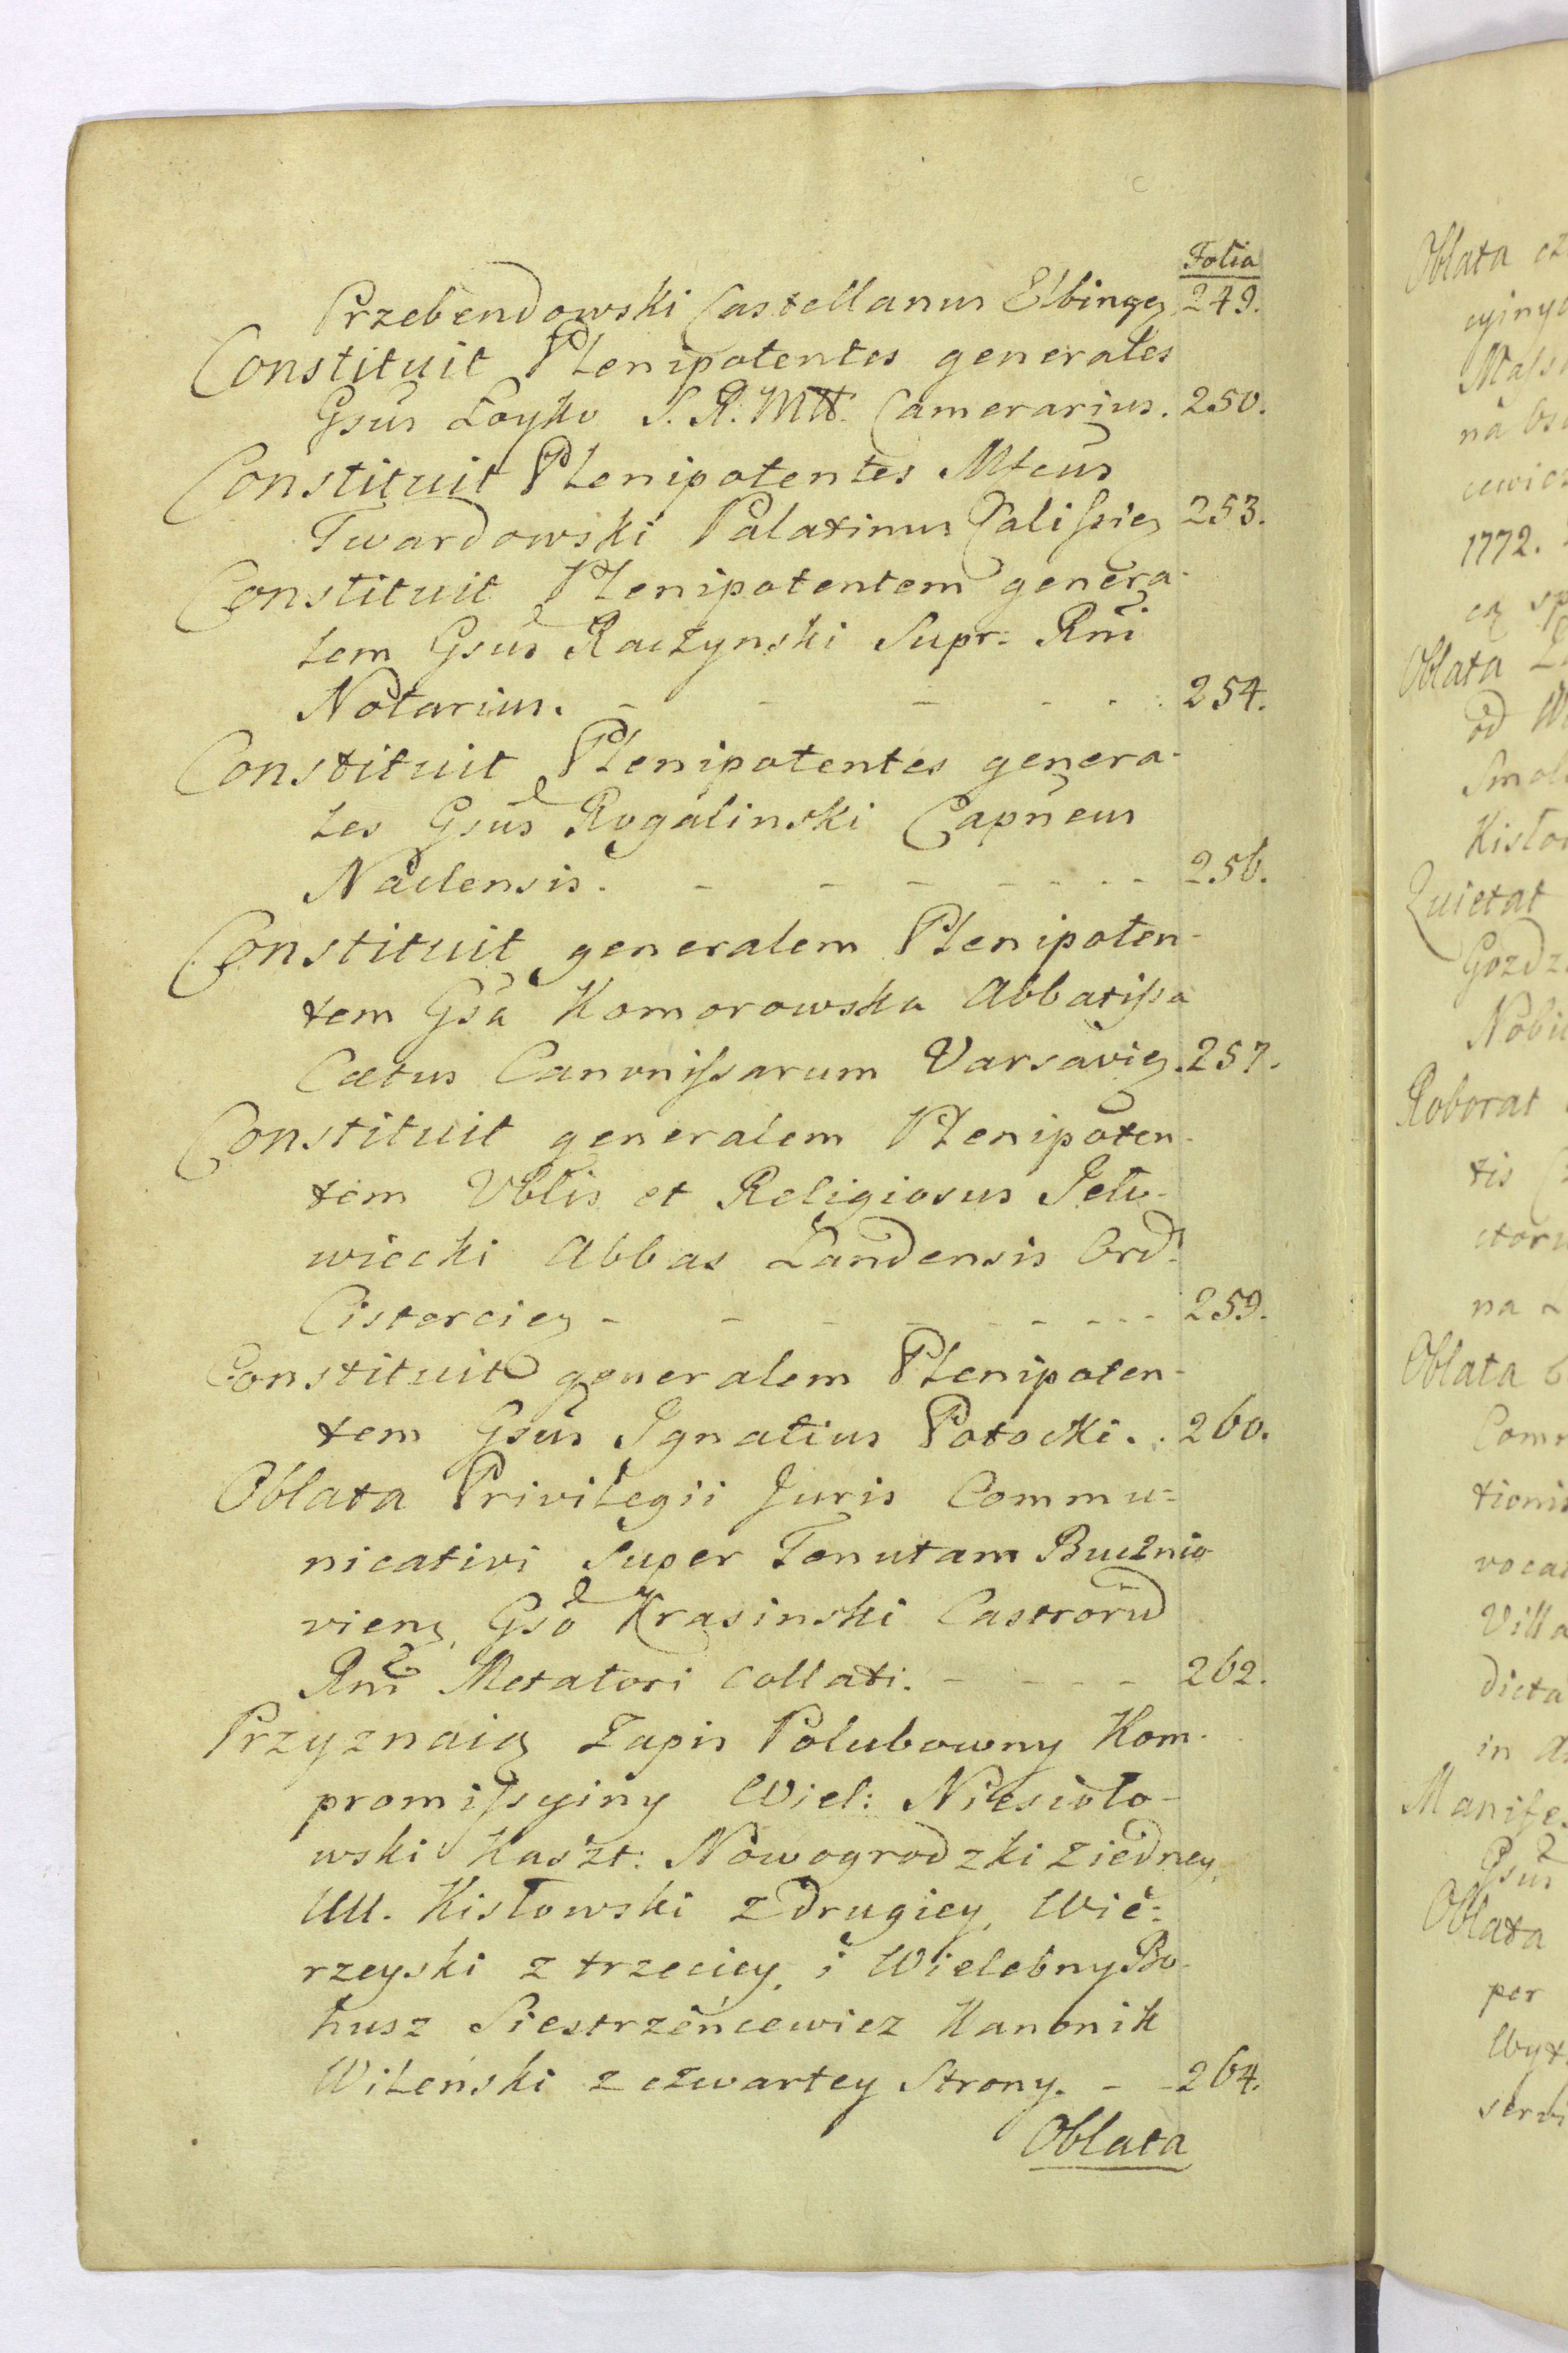 Folia
Przebendowski Castellanus Elbingen 249.
Constituit Plenipotentes generales
Gsus Łoyko S. R. Mtt. Camerarius. 250.
Constituit Plenipotentes Mfcus
Twardowski Palatinus Calissien 253.
Constituit Plenipotentem genera-
lem Gsus Raczynski Supr: Rni
Notarius. - - - - - 254.
Constituit Plenipotentes genera-
les Gsus Rogalinski Capneus
Naclensis. - - - - - - 256.
Constituit generalem Plenipoten-
tem Gsa Komorowska Abbatissa
Cœtus Canonissarum Varsavien. 257.
Constituit generalem Plenipoten-
tem Vblis et Religiosus
wiecki Abbas Landensis Ord:
Cistercien - - - - - - - 259.
Constituit generalem Plenipoten-
tem Gsus Ignatius Potocki. . 260.
Oblata Privilegii Juris Commu=
nicativi Super Tenutam Bucznio
vien, Gso Krasinski Castrorũ
Rni Metatori collati. - - - - 262.
Przyznaią Zapis Polubowny Kom-
promissyiny Wiel: Niesioło-
wski Kaszt: Nowogrodzki ziedney,
UU. Kisłowski z drugiey, Wie=
rzeyski z trzeciey, i Wielebny Bo-
husz Siestrzeńcewicz Kanonik
Wileński z czwartey Strony. - - 264.
Oblata
Oblata
1772.
Oblata
od
Quietat
Roborat
tis
na
Oblata
vocat
Villa
dicta
in
Gsus
Oblata
per